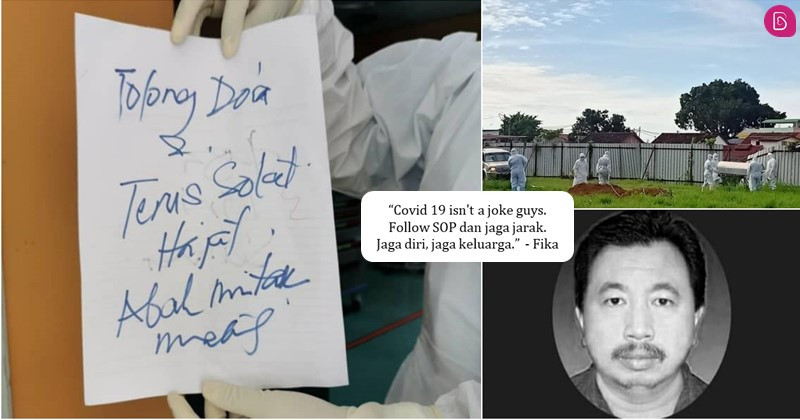 Tolong Doa
&.
Terus Solat
Hajat.
Abah mintak
"Covid 19 isn't a joke guys.
Follow SOP dan jaga jarak.
Jaga diri, jaga keluarga." - Fika